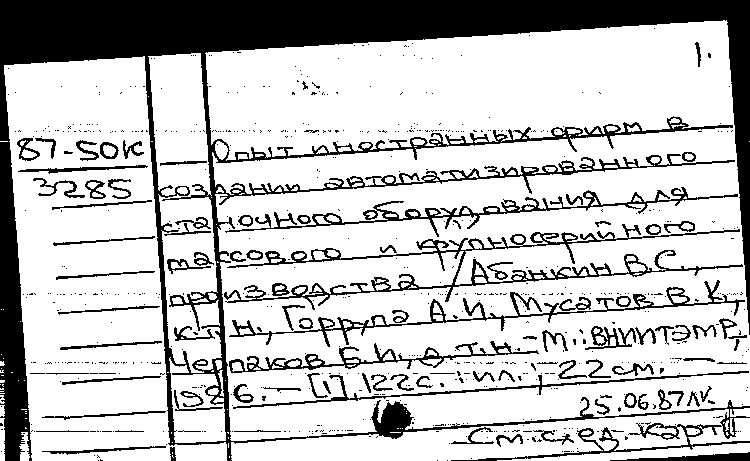 1.
87-50К Опыт иностранных фирм в
3285 создании автоматизированного
станочного оборудования для
массового и крупносерийного
производства / Абанкин В.С.,
к.т.н., Горрупа А.И., Мусатов В.К.,
Черпаков Б.И., д.т.н. - М.: ВНИИТЭМР,
1986. - [1], 122с. : ил.; 22 см. -
25.06.87 ЛК
См. след. карт